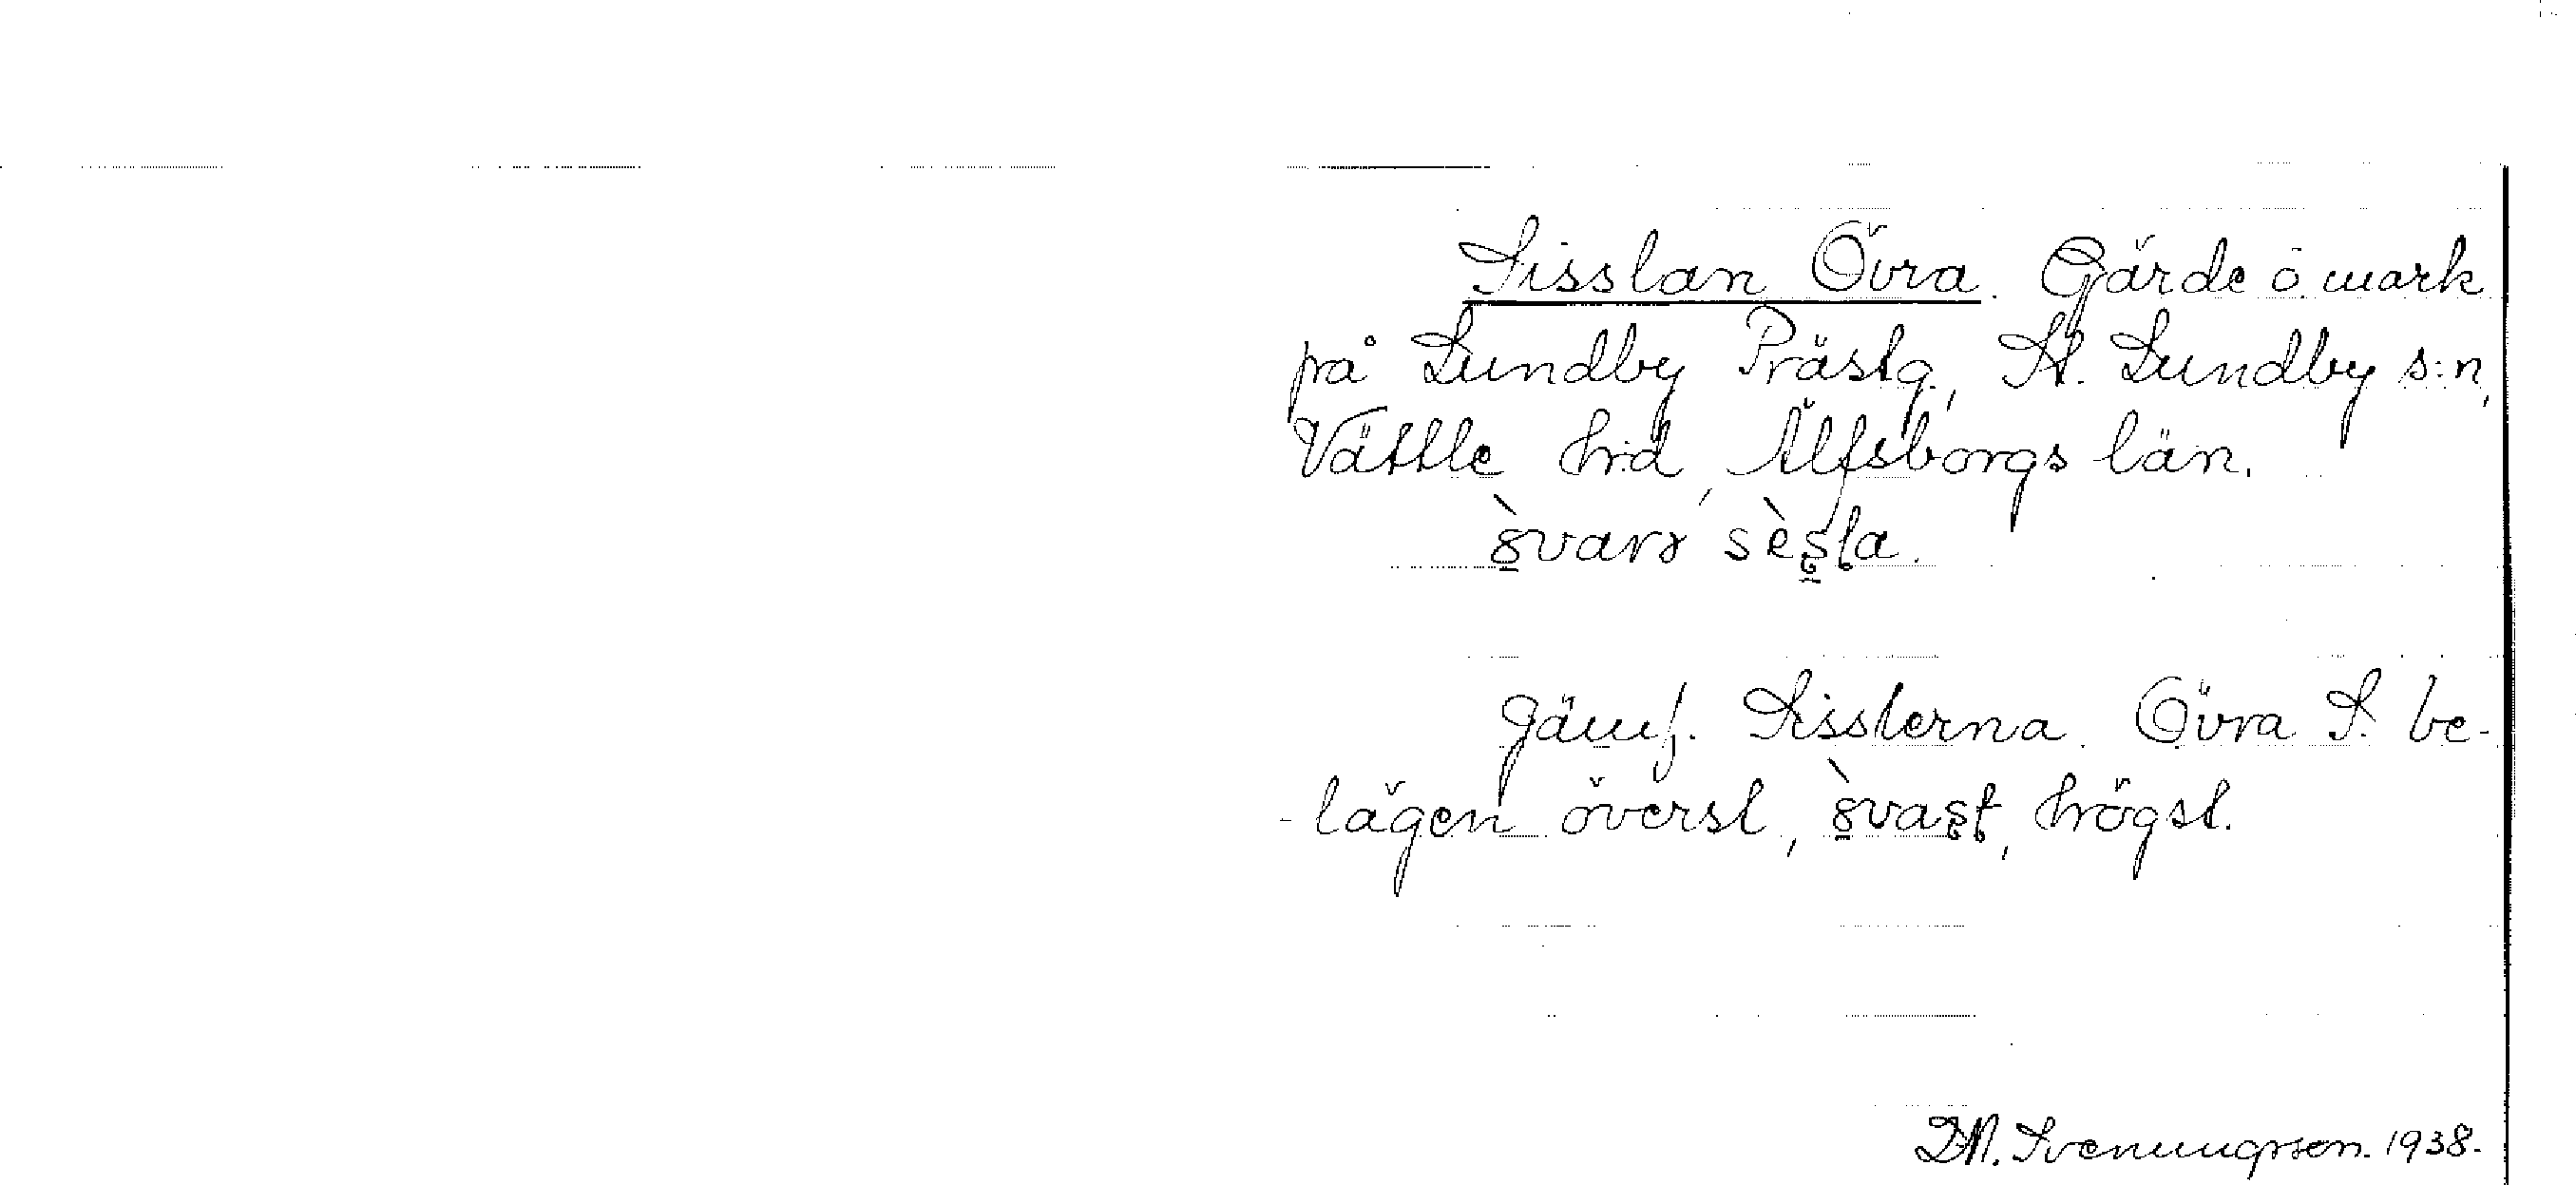 Sisslan Övra. Gärde o. mark
på Lundby Prästg., St. Lundby s:n,
Vättle h:d, Älfsborgs län.
Jämf. Sisslerna. Övra S. be-
-lägen överst, högst.
D.N. Svenungsson. 1938.